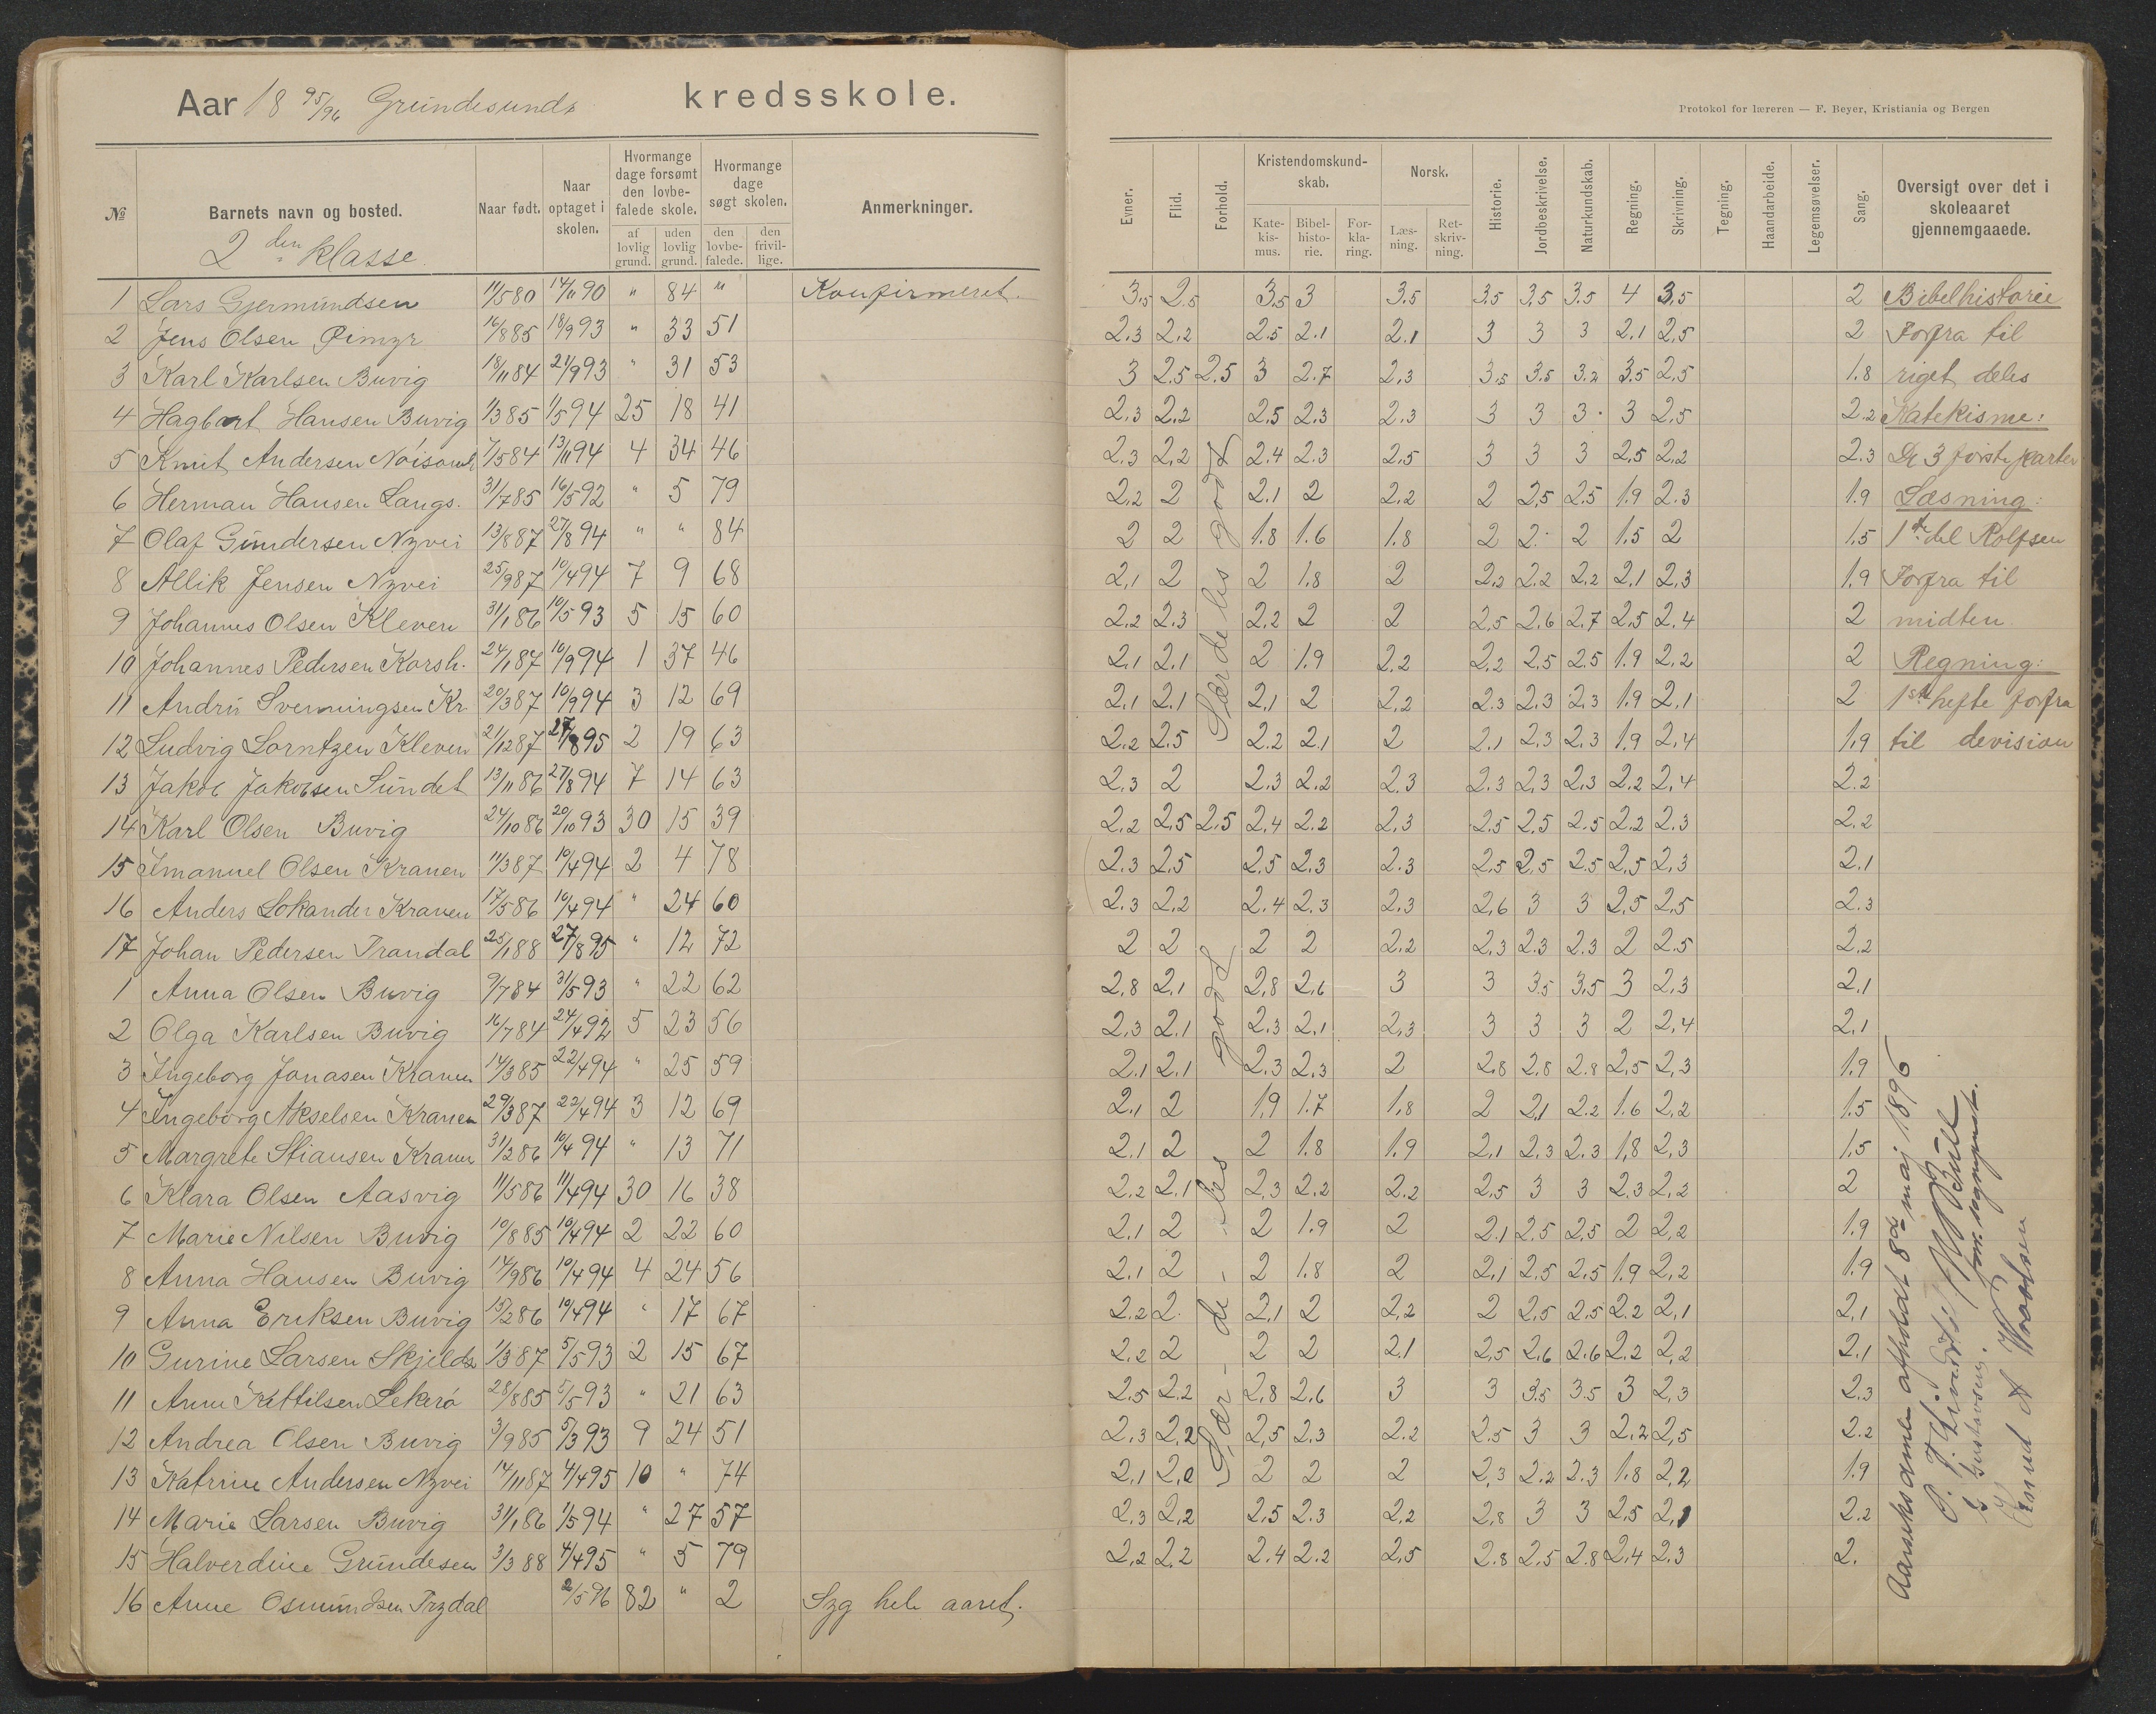 Aar 18 95/96 Grundesunds kredsskole.
Protokol for læreren — F. Beyer, Kristiania og Bergen
№ Barnets navn og bosted. Naar født. Naar optaget i skolen. Hvormange dage forsømt den lovbefalede skole. af lovlig grund. uden lovlig grund. Hvormange dage søgt skolen. den lovbefalede. den frivillige. Anmerkninger.
Evner. Flid. Forhold. Kristendomskundskab. Katekismus. Bibelhistorie. Forklaring. Norsk. Læsning. Retskrivning. Historie. Jordbeskrivelse. Naturkundskab. Regning. Skrivning. Tegning. Haandarbeide. Legemsøvelser. Sang. Oversigt over det i skoleaaret gjennemgaaede.
2den klasse.
1 Lars Gjermundsen 11/5 80 14/11 90 " 84 " Konfirmeret. 3,5 2,5 3,5 3 3.5 3,5 3,5 3.5 4 3,5 2 Bibelhistorie
2 Jens Olsen 16/8 85 18/9 93 " 33 51 2.3 2,2 2.5 2.1 2.1 3 3 3 2.1 2,5 2 Forfra til
3 Karl Karlsen Buvig 18/11 84 21/9 93 " 31 53 3 2.5 2.5 3 2.7 2,3 3,5 3.5 3.2 3.5 2,5 1.8 riget deles
4 Hagbart Hansen Buvig 1/3 85 1/5 94 25 18 41 2.3 2.2 2.5 2.3 2.3 3 3 3 3 2,5 2.2 Katekisme:
5 Knut Andersen 1/5 84 13/11 94 4 34 46 2,3 2,2 2.4 2.3 2,5 3 3 3 2,5 2,2 2.3 De 3 første parter
6 Herman Hansen Langs. 31/7 85 16/5 92 " 5 79 2,2 2 2.1 2 2.2 2 2,5 2.5 1.9 2.3 1.9 Læsning:
7 Olaf Gundersen Nyvei 13/8 87 27/8 94 " " 84 2 2 1.8 1.6 1.8 2 2 2 1.5 2 1.5 1ste del Rolfsen
8 Allik Jensen Nyvei 25/9 87 10/4 94 7 9 68 2,1 2 2 1.8 2 2,2 2.2 2,2 2,1 2,3 1.9 Forfra til
9 Johannes Olsen Kleven 31/1 86 10/5 93 5 15 60 2.2 2.3 2.2 2 2 2,5 2,6 2.7 2,5 2.4 2 midten
10 Johannes Pedersen Korsh. 24/1 87 10/9 94 1 37 46 2.1 2.1 2 1.9 2.2 2.2 2.5 2.5 1.9 2,2 2 Regning:
11 Andrü Svenningsen Kr 20/3 87 10/9 94 3 12 69 2,1 2.1 2,1 2 2,2 2.3 2,3 2,3 1.9 2,1 2 1ste hefte forfra
12 Ludvig Lorntzen Kleven 21/12 87 27/8 95 2 19 63 2.2 2.5 2.2 2.1 2 2,1 2,3 2,3 1.9 2,4 1,9 til devision
13 Jakob Jakobsen Sundet 13/11 86 27/8 94 7 14 63 2,3 2 2.3 2.2 2.3 2.3 2,3 2,3 2.2 2,4 2.2
14 Karl Olsen Buvig 24/10 86 20/10 93 30 15 39 2.2 2.5 2.5 2.4 2.2 2.3 2.5 2.5 2.5 2.2 2.3 2.2
15 Imanuel Olsen Kranen 11/3 87 10/4 94 2 4 78 2.3 2,5 2.5 2.3 2.3 2,5 2,5 2.5 2,5 2,3 2,1
16 Anders Lokander Kranen 17/5 86 10/4 94 " 24 60 2.3 2,2 2.4 2.3 2,3 2,6 3 3 2,5 2,5 2.3
17 Johan Pedersen Trandal 25/1 88 27/8 95 " 12 72 2 2 2 2 2.2 2,3 2.3 2.3 2 2.5 2.2
1 Anna Olsen Buvig 9/7 84 31/5 93 " 22 62 2,8 2.1 2,8 2,6 3 3 3.5 3,5 3 2,3 2,1
2 Olga Karlsen Buvig 16/7 84 24/4 92 5 23 56 2,3 2.1 2.3 2.1 2,3 3 3 3 2 2,4 2,1
3 Ingeborg Jonasen Kranen 14/3 85 22/4 94 " 25 59 2.1 2.1 2.3 2.3 2 2.8 2,8 2.8 2,5 2,3 1.9
4 Ingeborg Akselsen Kranen 29/3 87 22/4 94 3 12 69 2,1 2 1,9 1.7 1,8 2 2,1 2.2 1.6 2,2 1.5
5 Margrete Stiansen Kranen 31/2 86 10/4 94 " 13 71 2.1 2 2 1.8 1.9 2,1 2.3 2.3 1,8 2,3 1.5
6 Klara Olsen Aasvig 11/5 86 11/4 94 30 16 38 2.2 2.1 2,3 2.2 2.2 2,5 3 3 2.3 2,2 2
7 Marie Nilsen Buvig 10/8 85 10/4 94 2 22 60 2.1 2 2 1.9 2 2.1 2.5 2,5 2 2,2 1.9
8 Anna Hansen Buvig 14/9 86 10/4 94 4 24 56 2.1 2 2 1.8 2 2,1 2.5 2.5 1.9 2,2 1.9
9 Anna Eriksen Buvig 15/2 86 10/4 94 " 17 67 2.2 2 2,1 2 2,2 2 2,5 2.5 2.2 2,1 2,1
10 Gurine Larsen Skjelds 1/3 87 5/5 93 2 15 67 2.2 2 2 2 2.1 2,5 2,6 2.6 2.2 2,2 2.1
11 Anne Kittilsen Lekerø 28/8 85 5/5 93 " 21 63 2.5 2.2 2,8 2.6 3 3 3.5 3.5 3 2,3 2.3
12 Andrea Olsen Buvig 3/9 85 5/3 93 9 24 51 2,3 2,2 2,5 2.3 2.2 2.5 3 3 2,2 2,5 2.2
13 Katrine Andersen Nyvei 14/11 87 4/4 95 10 " 74 2,1 2,0 2 2 2 2,3 2.2 2.3 1.8 2,2 1.9
14 Marie Larsen Buvig 31/1 86 1/5 94 " 27 57 2,3 2,2 2.5 2.3 2,2 2,8 3 3 2,5 2,1 2.2
15 Halverdine Grundesen 3/3 88 4/4 95 " 5 79 2,2 2.2 2.4 2.2 2,5 2.8 2.5 2.8 2,4 2.3 2.
16 Anne Osmundsen Trydal 2/5 96 82 " 2 Syg hele aaret.
Særdeles godt
Sær-de-les godt
Aarseksamen afholdt 8de maj 1896
for. sognepræst.
Knud A